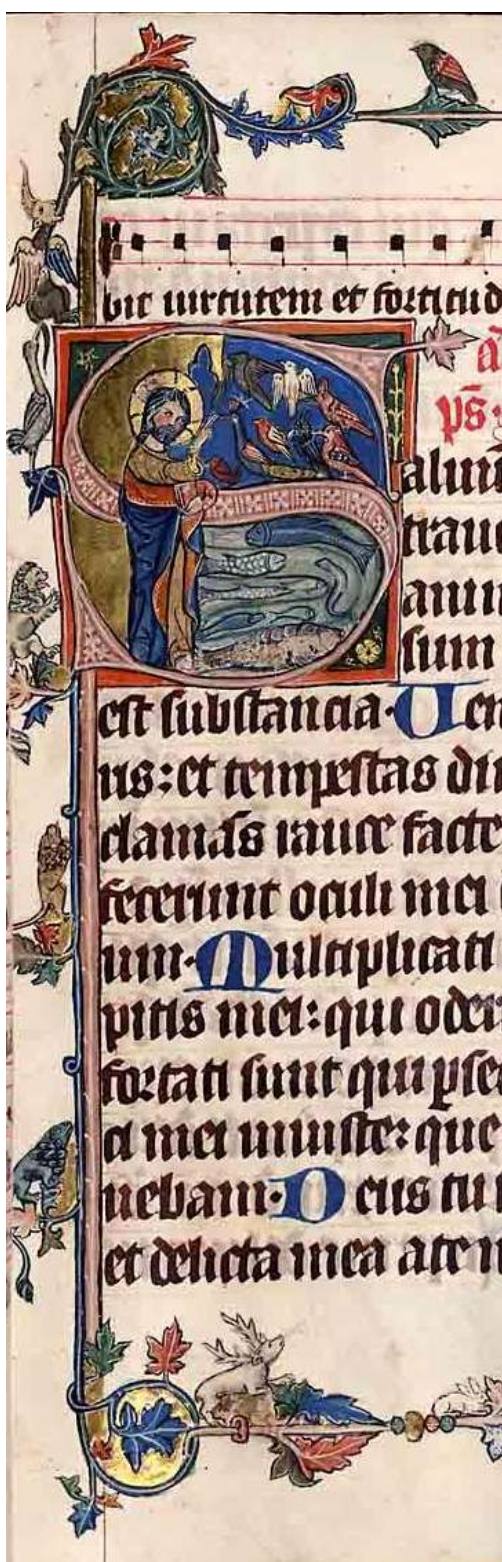 bit uirtutem et fortitud
a
ps̄
Saluū
traue
anim
sum
est substancia. Uen
us: et tempestas dim
clamās rauce facte
fecerunt oculi mei
um. Multiplicati
pitis mei: qui oder
fortati sunt qui ꝑse
ti mei iniuste: que
nebam. Deus tu
et delicta mea a te n